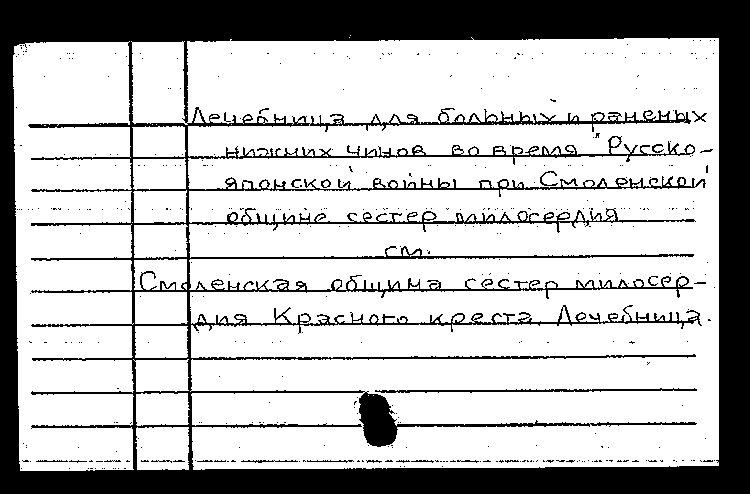 Лечебница для больных и раненых
нижних чинов во время Русско-
японской войны при Смоленской
общине сестер милосердия
см.
Смоленская община сестер милосер-
дия Красного креста. Лечебница.